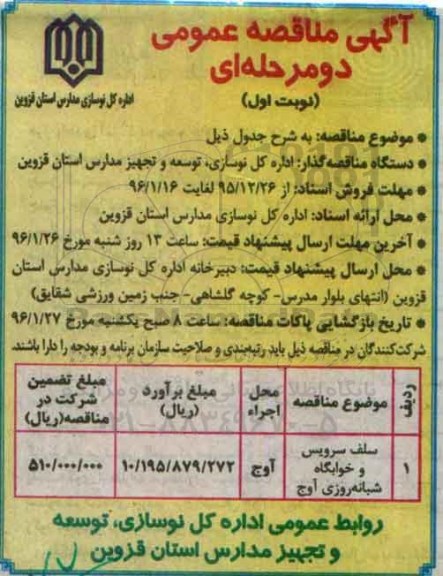 آگهی مناقصه عمومی
دومرحله‌ای
(نوبت اول)
اداره کل نوسازی مدارس استان قزوین
• موضوع مناقصه: به شرح جدول ذیل
• دستگاه مناقصه‌گذار: اداره کل نوسازی، توسعه و تجهیز مدارس استان قزوین
• مهلت فروش اسناد: از ۹۵/۱۲/۲۶ لغایت ۹۶/۱/۱۶
• محل ارائه اسناد: اداره کل نوسازی مدارس استان قزوین
• آخرین مهلت ارسال پیشنهاد قیمت: ساعت ۱۳ روز شنبه مورخ ۹۶/۱/۲۶
• محل ارسال پیشنهاد قیمت: دبیرخانه اداره کل نوسازی مدارس استان
قزوین (انتهای بلوار مدرس- کوچه گلشاهی- جنب زمین ورزشی شقایق)
• تاریخ بازگشایی پاکات مناقصه: ساعت ۸ صبح یکشنبه مورخ ۹۶/۱/۲۷
شرکت‌کنندگان در مناقصه ذیل باید رتبه‌بندی و صلاحیت سازمان برنامه و بودجه را دارا باشند.
ردیف موضوع مناقصه محل اجراء مبلغ برآورد (ریال) مبلغ تضمین شرکت در مناقصه(ریال)
۱ سلف سرویس و خوابگاه شبانه‌روزی آوج آوج ۱۰/۱۹۵/۸۷۹/۲۷۲ ۵۱۰/۰۰۰/۰۰۰
روابط عمومی اداره کل نوسازی، توسعه
و تجهیز مدارس استان قزوین